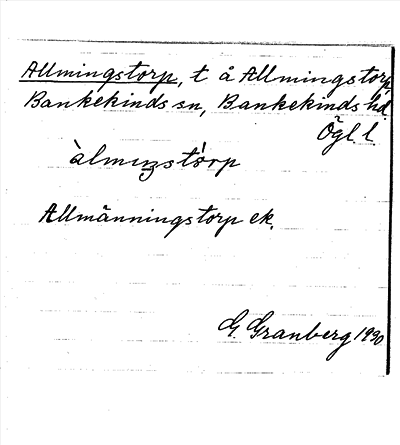 Allmingstorp, t å Allmingstorp,
Bankekinds sn, Bankekinds hd.
Ögl. l.
àlmiŋstórp
Allmänningstorp ek.
G. Granberg 1930